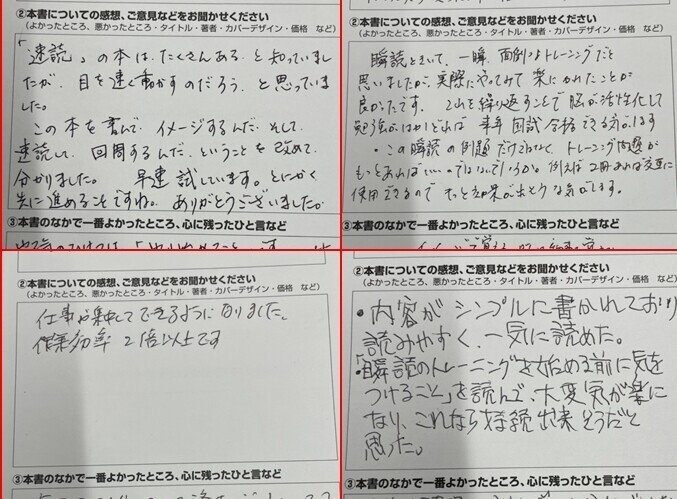 ②本書についての感想、ご意見などをお聞かせください
(よかったところ、悪かったところ・タイトル・著者・カバーデザイン・価格 など)
「速読」の本はたくさんある、と知っていまし
たが、目を速く動かすのだろう、と思っていま
した。
この本を読んで、イメージするんだ、そして
速読して、回周するんだ、ということを改めて、
分かりました。 早速試しています。とにかく
先に進めることですね。ありがとうございました。
③本書のなかで一番よかったところ、心に残ったひと言など
②本書についての感想、ご意見などをお聞かせください
(よかったところ、悪かったところ・タイトル・著者・カバーデザイン・価格 など)
瞬読ときいて、一瞬、面倒なトレーニングだと
思いましたが、実際にやってみて楽にかれたことが
良かったです。これを繰り返すことで脳が活性化して
勉強がはかどれば 来年 国試合格できる
・この瞬読の例題だけではなく、トレーニング問題が
もっとあればいい のではないでしょうか。例えば2冊あれば交互に
使用できるので もっと効果が出そうな気がします。
③本書のなかで一番よかったところ、心に残ったひと言など
②本書についての感想、ご意見などをお聞かせください
(よかったところ、悪かったところ・タイトル・著者・カバーデザイン・価格 など)
仕事が集中してできるようになりました。
作業効率 2倍以上です
③本書のなかで一番よかったところ、心に残ったひと言など
②本書についての感想、ご意見などをお聞かせください
(よかったところ、悪かったところ・タイトル・著者・カバーデザイン・価格 など)
・内容がシンプルに書かれており
読みやすく、一気に読めた。
・「瞬読のトレーニングを始める前に気を
つけること」を読んで、大変気が楽に
なり、これなら継続出来そうだと
思った。
③本書のなかで一番よかったところ、心に残ったひと言など